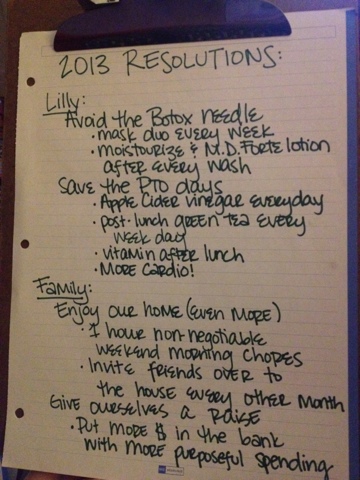 2013 RESOLUTIONS:
Lilly:
Avoid the Botox needle
• mask duo every week
• moisturize & M.D. Forte lotion
after every wash
Save the PTO days
• Apple Cider vinegar everyday
• post-lunch green tea every
week day
• vitamin after lunch
• MORE Cardio!
Family:
Enjoy our home (Even More)
• 1 hour non-negotiable
weekend morning chores
• Invite friends over to
the house every other month
Give ourselves a Raise
• Put more $ in the bank
with more purposeful spending